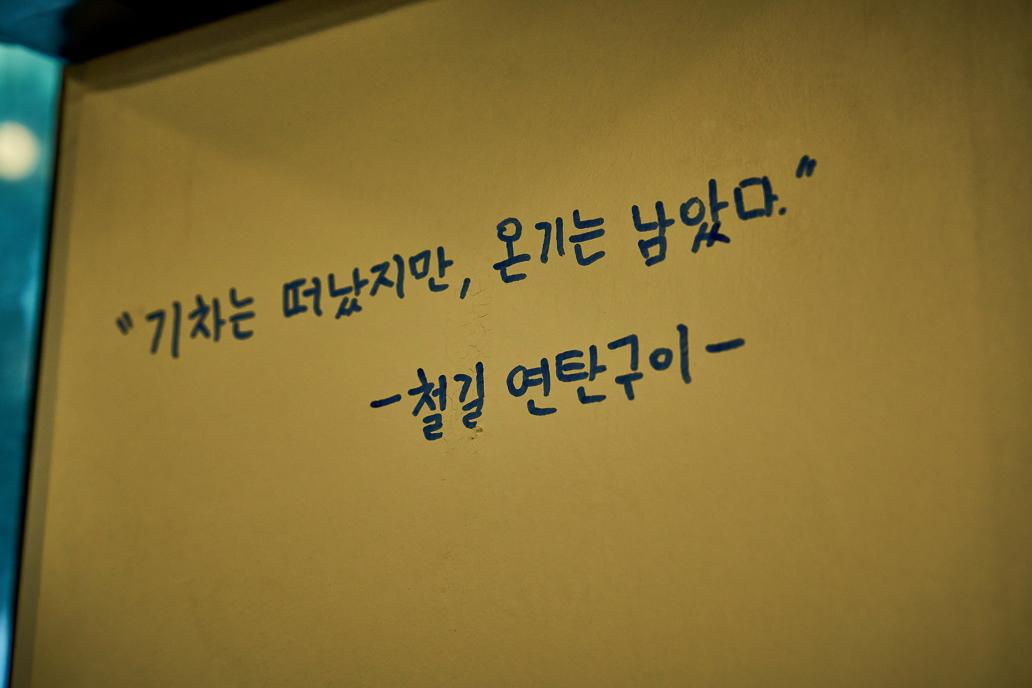 "기차는 떠났지만, 온기는 남았다."
-철길 연탄구이-